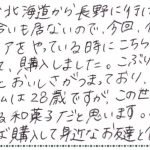 北海道から長野に行
合いも居ないので、今回、イ
アをやっている時にこちら
、購入しました。こぶり
とおいしさがつまっており、
ムは28歳ですが、この世
る和菓子だと思います。
ば購入して身近なお友達と